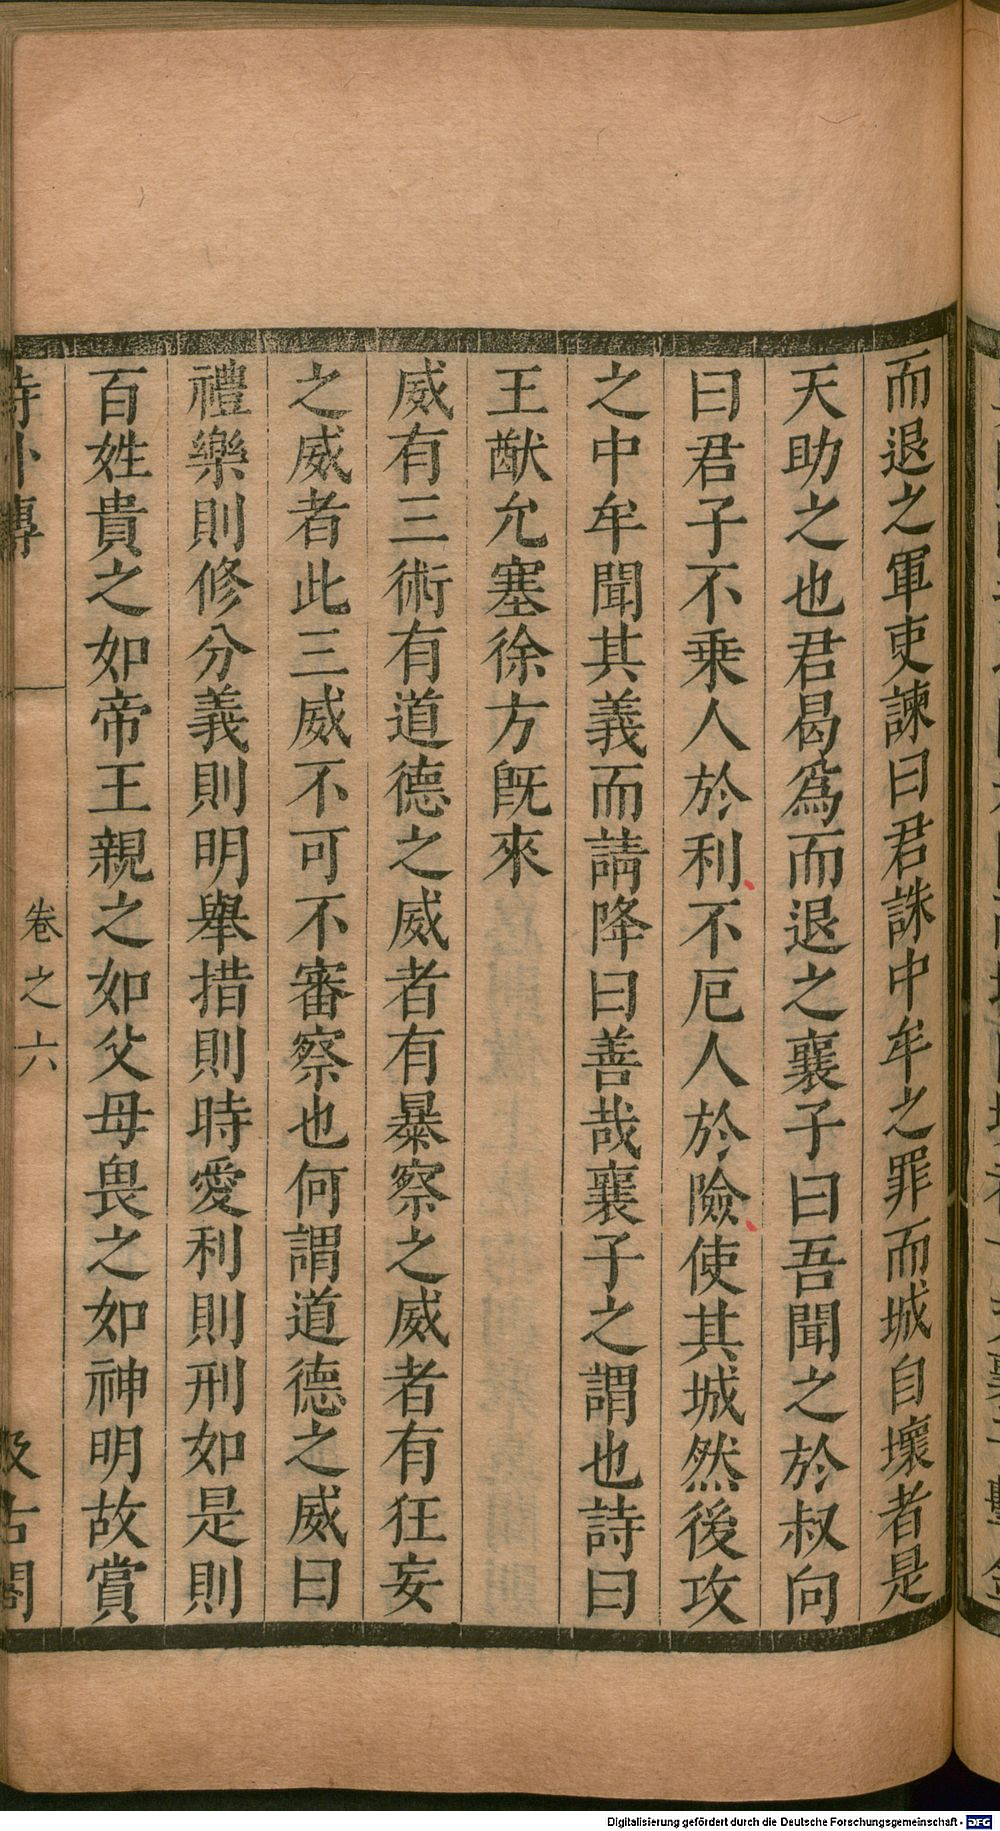 而退之軍吏諫曰君誅中牟之罪而城自壞者是
天助之也君曷爲而退之襄子曰吾聞之於叔向
曰君子不乗人於利不厄人於險使其城然後攻
之中牟聞其義而請降曰善哉襄子之謂也詩曰
王猷允塞徐方旣來
威有三術有道德之威者有暴察之威者有狂妄
之威者此三威不可不審察也何謂道德之威曰
禮樂則修分義則明舉措則時愛利則刑如是則
百姓貴之如帝王親之如父母畏之如神明故賞
詩外傳 卷之六 汲古閣
Digitalisierung gefördert durch die Deutsche Forschungsgemeinschaft - DFG